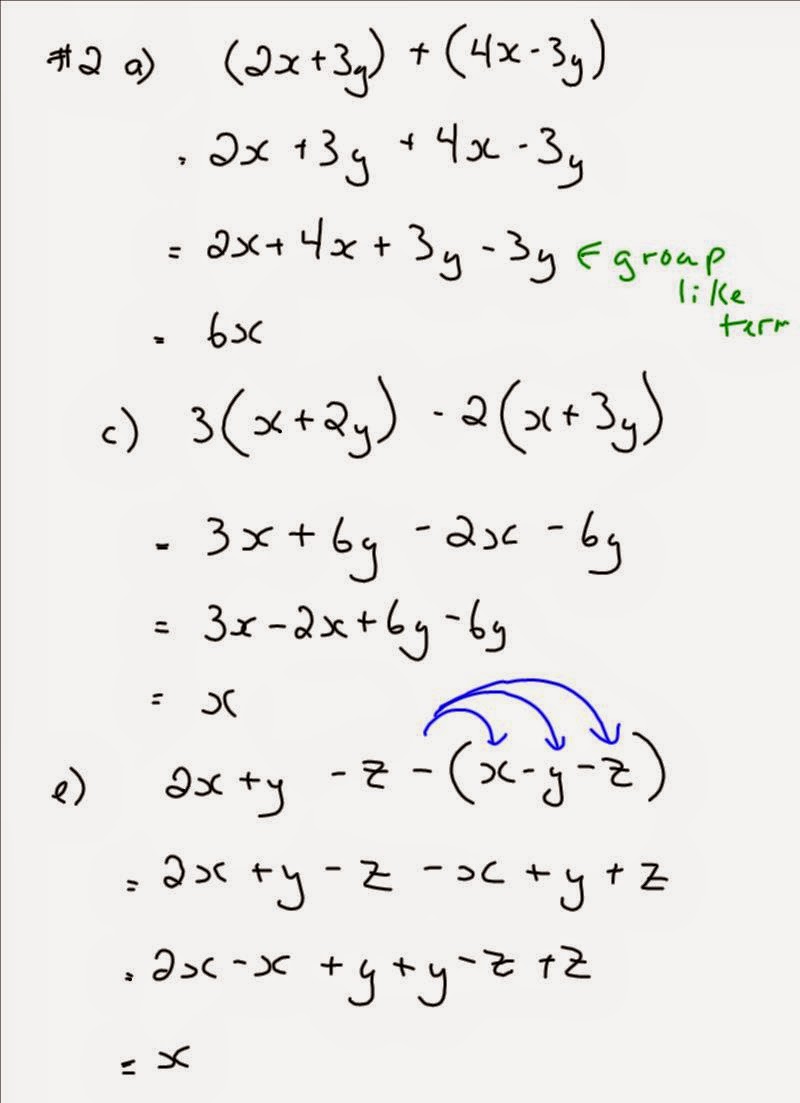 #2 a) (2x+3y) + (4x-3y)
= 2x +3y + 4x -3y
= 2x+4x+3y-3y ← group
like
term
= 6x
c) 3(x+2y) -2(x+3y)
= 3x+6y -2x -6y
= 3x-2x+6y-6y
= x
e) 2x+y -z-(x-y-z)
= 2x+y-z -x+y+z
= 2x-x +y+y-z+z
= x